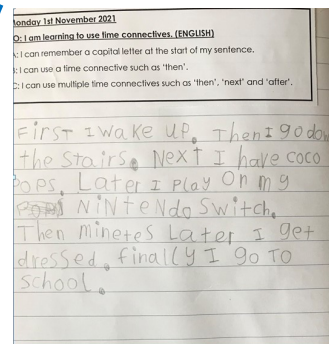 onday 1st November 2021
O: I am learning to use time connectives. (ENGLISH)
: I can remember a capital letter at the start of my sentence.
: I can use a time connective such as 'then'.
C: I can use multiple time connectives such as 'then', 'next' and 'after'.
First I wake up. Then I go dow
the stairs. Next I have coco
pops. Later I play on my
NiNteNdo Switch.
Then minetes Later I get
dressed. finally I go To
School.